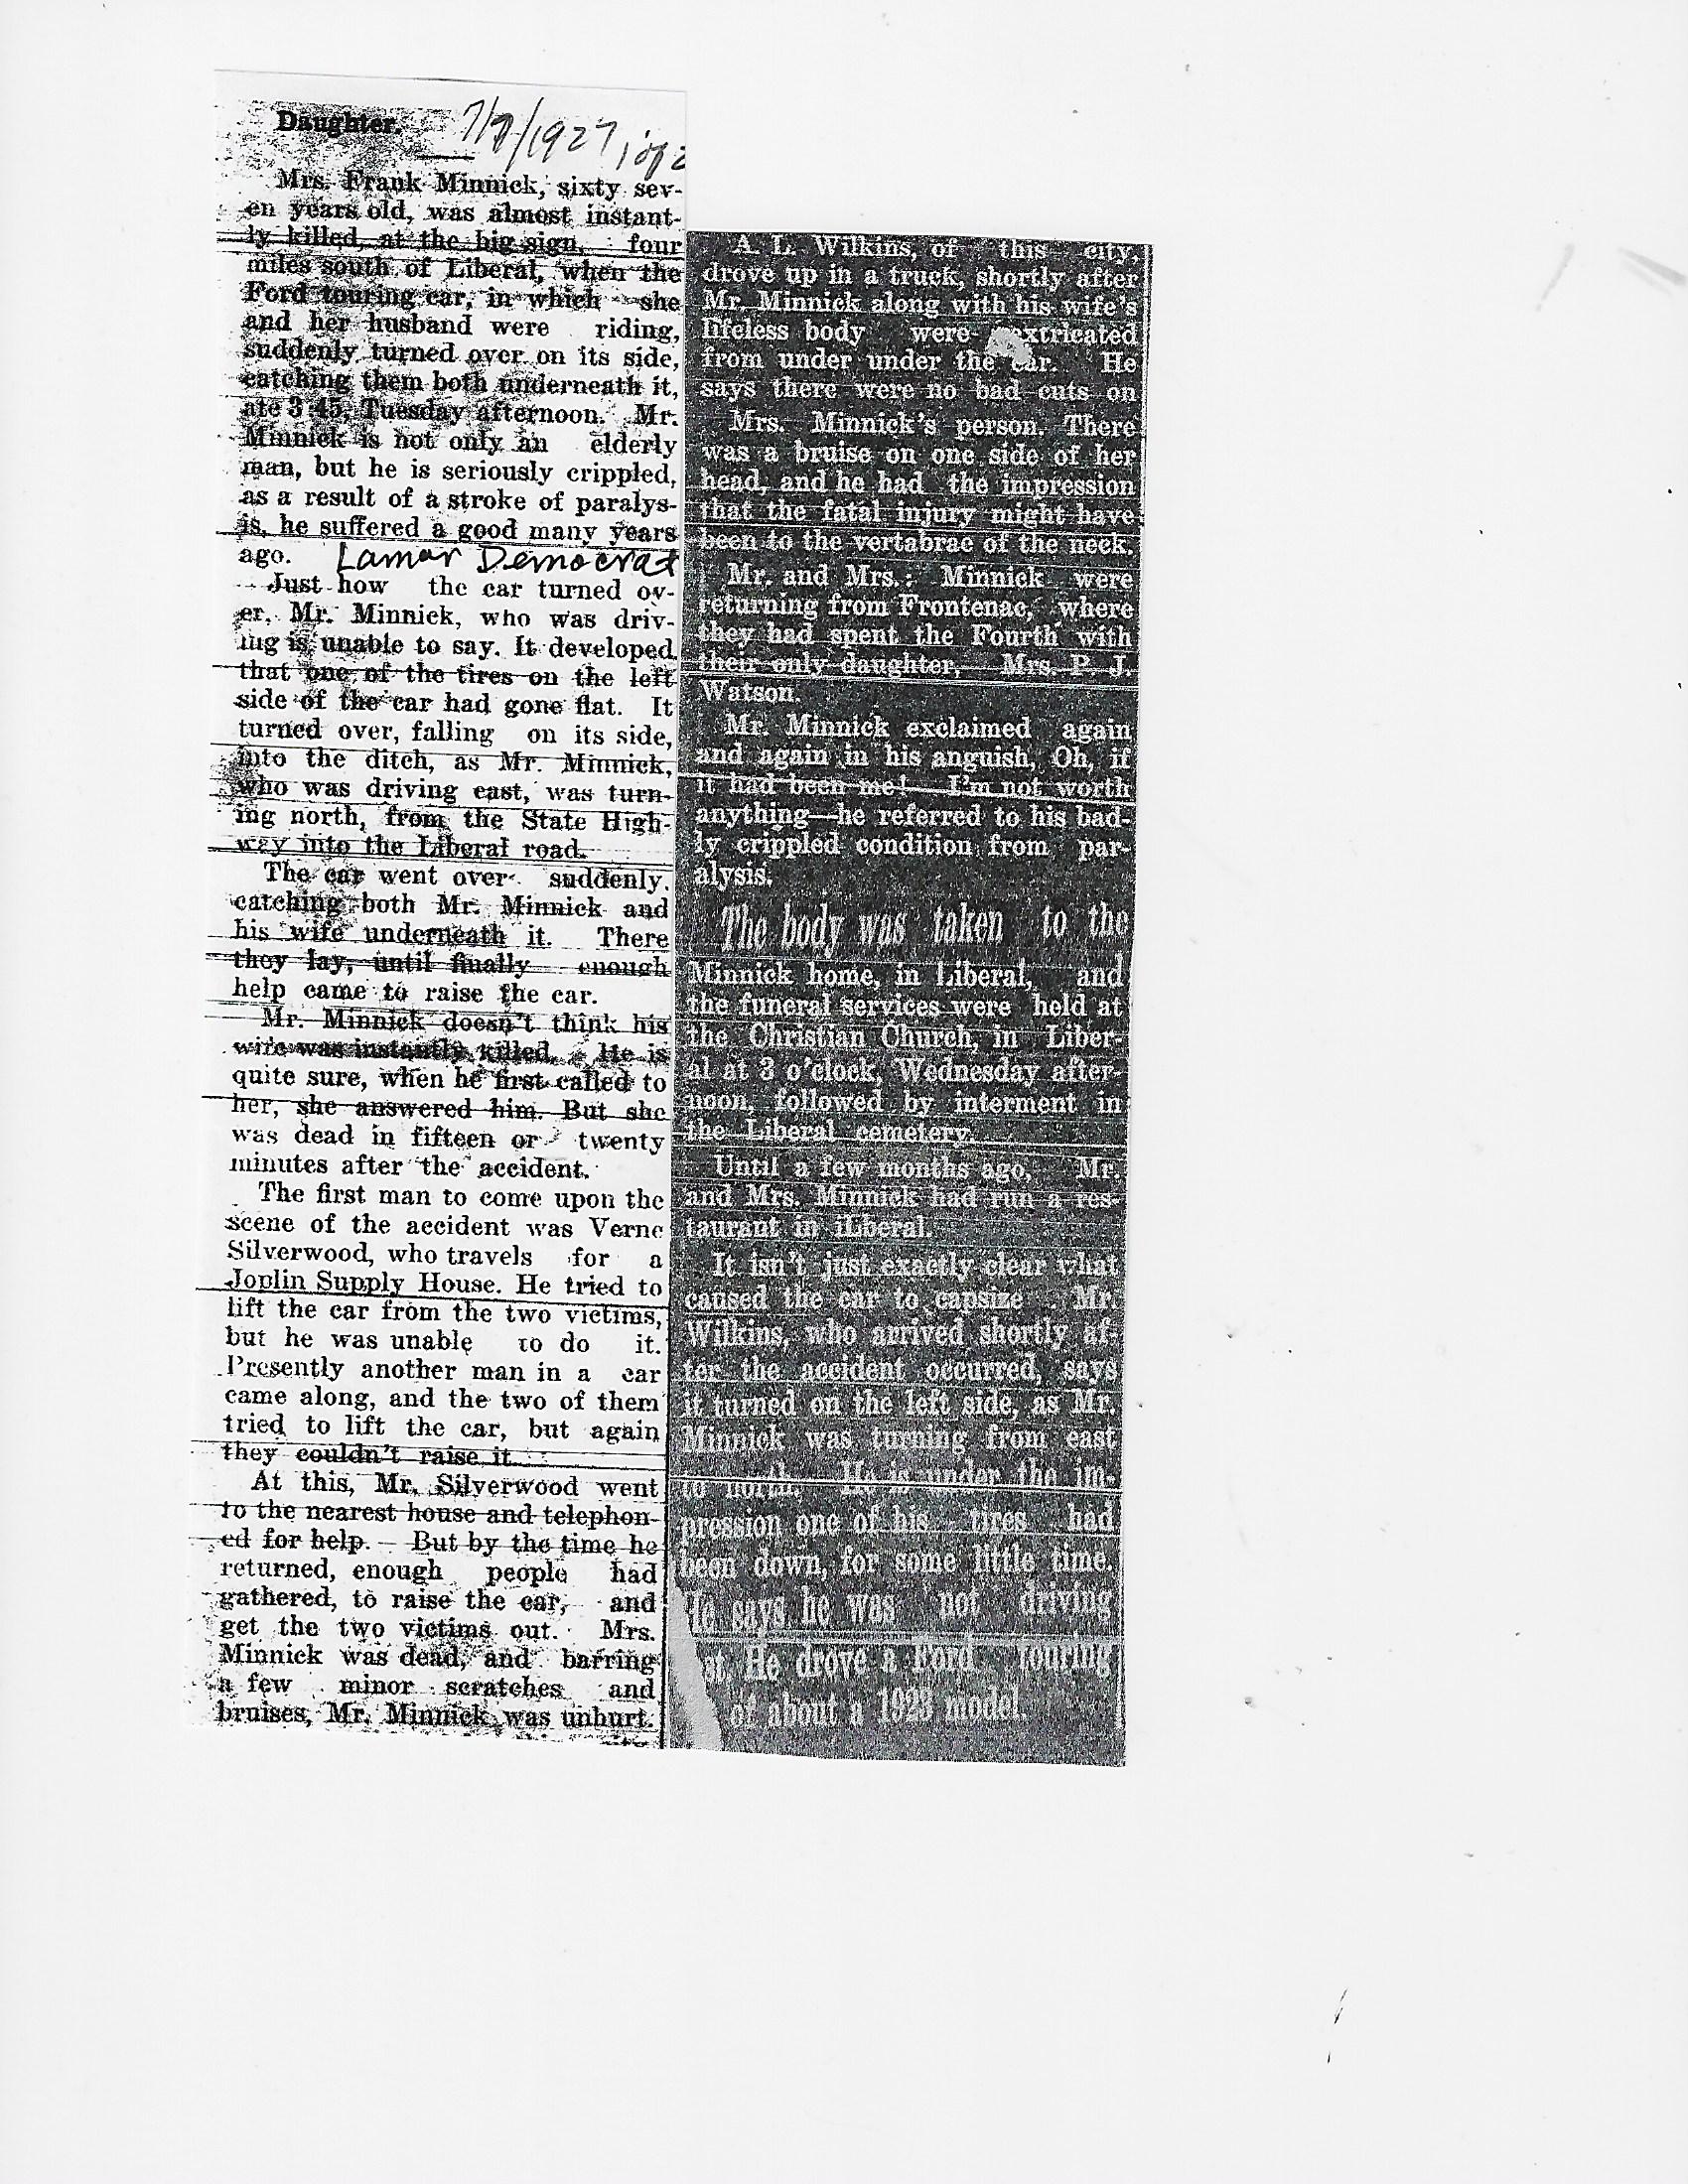 Daughter.
7/7/1927,
Mrs. Frank Minnick, sixty sev-
en years old, was almost instant-
ly killed, at the big sign, four
miles south of Liberal, when the
Ford touring car, in which she
and her husband were riding,
suddenly turned over on its side,
catching them both underneath it,
ate 3:45, Tuesday afternoon. Mr.
Minnick is not only an elderly
man, but he is seriously crippled,
as a result of a stroke of paralys-
is, he suffered a good many years
ago. Lamar Democrat
Just how the car turned ov-
er, Mr. Minnick, who was driv-
ing is unable to say. It developed
that one of the tires on the left
side of the car had gone flat. It
turned over, falling on its side,
into the ditch, as Mr. Minnick,
who was driving east, was turn-
ing north, from the State High-
way into the Liberal road.
The car went over suddenly,
catching both Mr. Minnick and
his wife underneath it. There
they lay, until finally enough
help came to raise the car.
Mr. Minnick doesn't think his
wife was instantly killed. He is
quite sure, when he first called to
her, she answered him. But she
was dead in fifteen or twenty
minutes after the accident.
The first man to come upon the
scene of the accident was Verne
Silverwood, who travels for a
Joplin Supply House. He tried to
lift the car from the two victims,
but he was unable to do it.
Presently another man in a car
came along, and the two of them
tried to lift the car, but again
they couldn't raise it.
At this, Mr. Silverwood went
to the nearest house and telephon-
ed for help. But by the time he
returned, enough people had
gathered, to raise the car, and
get the two victims out. Mrs.
Minnick was dead, and barring
a few minor scratches and
bruises, Mr. Minnick was unhurt.
A. L. Wilkins, of this city,
drove up in a truck, shortly after
Mr. Minnick along with his wife's
lifeless body were extricated
from under under the car. He
says there were no bad cuts on
Mrs. Minnick's person. There
was a bruise on one side of her
head, and he had the impression
that the fatal injury might have
been to the vertabrae of the neck.
Mr. and Mrs. Minnick were
returning from Frontenac, where
they had spent the Fourth with
their only daughter, Mrs. P. J.
Watson.
Mr. Minnick exclaimed again
and again in his anguish, Oh, if
it had been me! I'm not worth
anything—he referred to his bad-
ly crippled condition from par-
alysis.
The body was taken to the
Minnick home, in Liberal, and
the funeral services were held at
the Christian Church, in Liber-
al at 3 o'clock, Wednesday after-
noon, followed by interment in
the Liberal cemetery.
Until a few months ago, Mr.
and Mrs. Minnick had run a res-
taurant in iLiberal.
It isn't just exactly clear what
caused the car to capsize. Mr.
Wilkins, who arrived shortly af-
ter the accident occurred, says
it turned on the left side, as Mr.
Minnick was turning from east
to north. He is under the im-
pression one of his tires had
been down, for some little time.
He says he was not driving
st. He drove a Ford touring
of about a 1923 model.